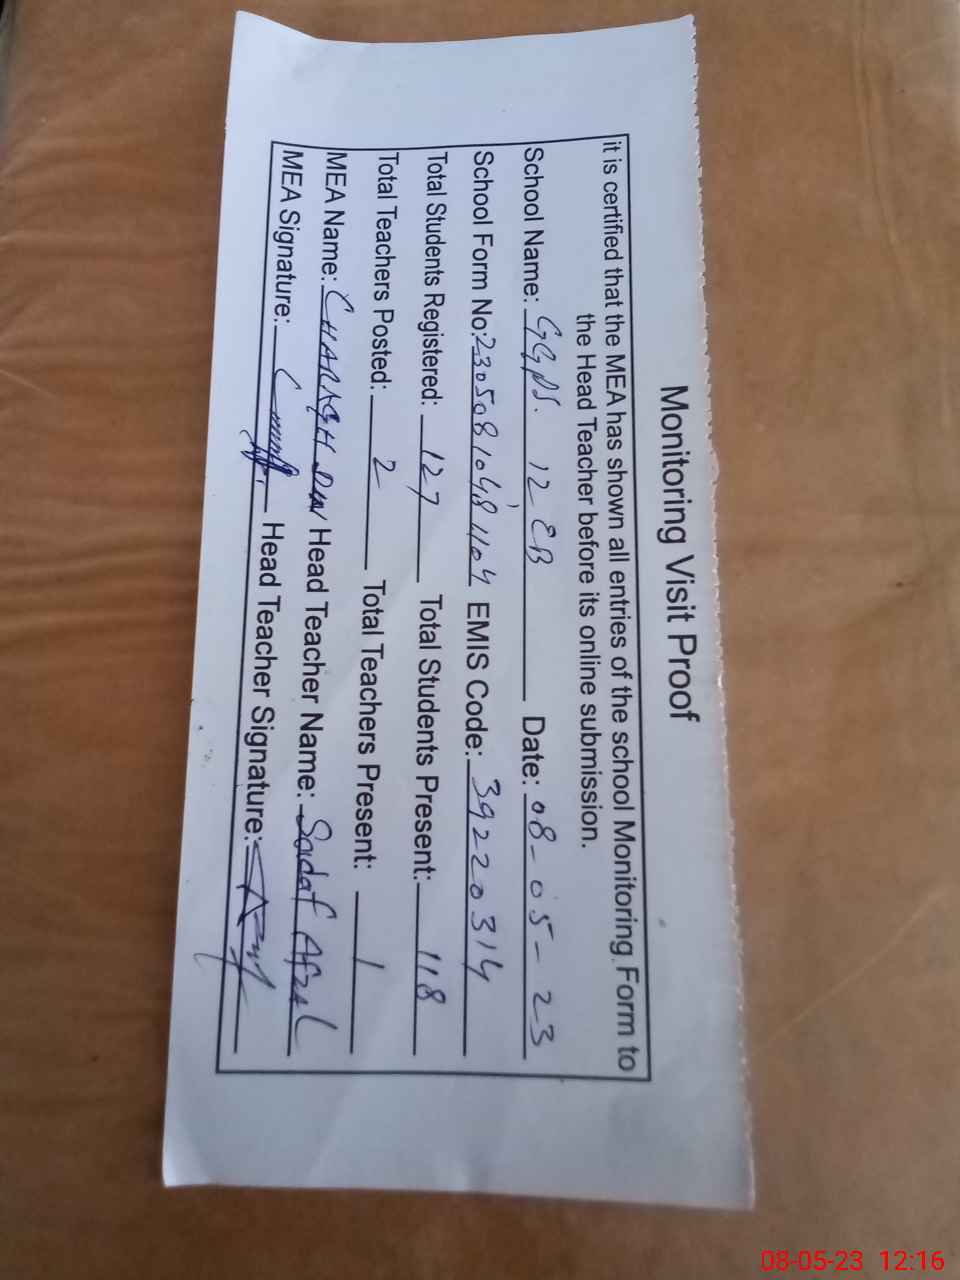 Monitoring Visit Proof
it is certified that the MEA has shown all entries of the school Monitoring Form to
the Head Teacher before its online submission.
School Name: GGPS. 12 EB Date: 08-05-23
School Form No: 23050810481104 EMIS Code: 39220314
Total Students Registered: 127 Total Students Present: 118
Total Teachers Posted: 2 Total Teachers Present: 1
MEA Name: CHARAGH DIN Head Teacher Name: Sadaf Afzal
MEA Signature: Head Teacher Signature:
08-05-23 12:16